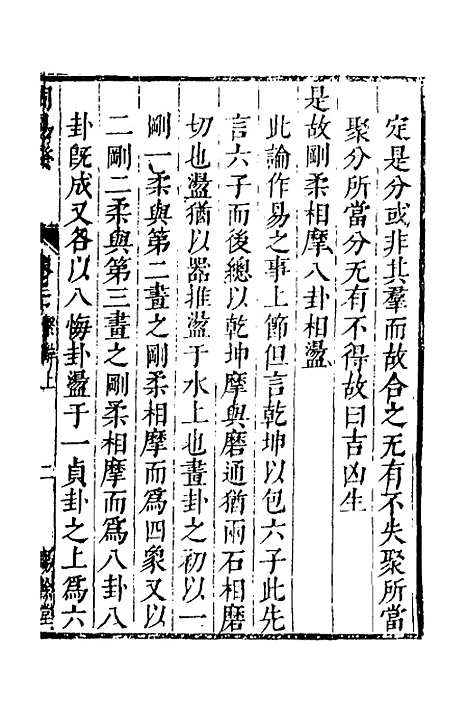 定是分或非其羣而故合之无有不失聚所當
聚分所當分无有不得故曰吉凶生
是故剛柔相摩八卦相盪
此論作易之事上節但言乾坤以包六子此先
言六子而後總以乾坤摩與磨通猶兩石相磨
切也盪猶以器推盪于水上也畫卦之初以一
剛一柔與第二畫之剛柔相摩而爲四象又以
二剛二柔與第三畫之剛柔相摩而爲八卦八
卦旣成又各以八悔卦盪于一貞卦之上爲六
繫辭上
二